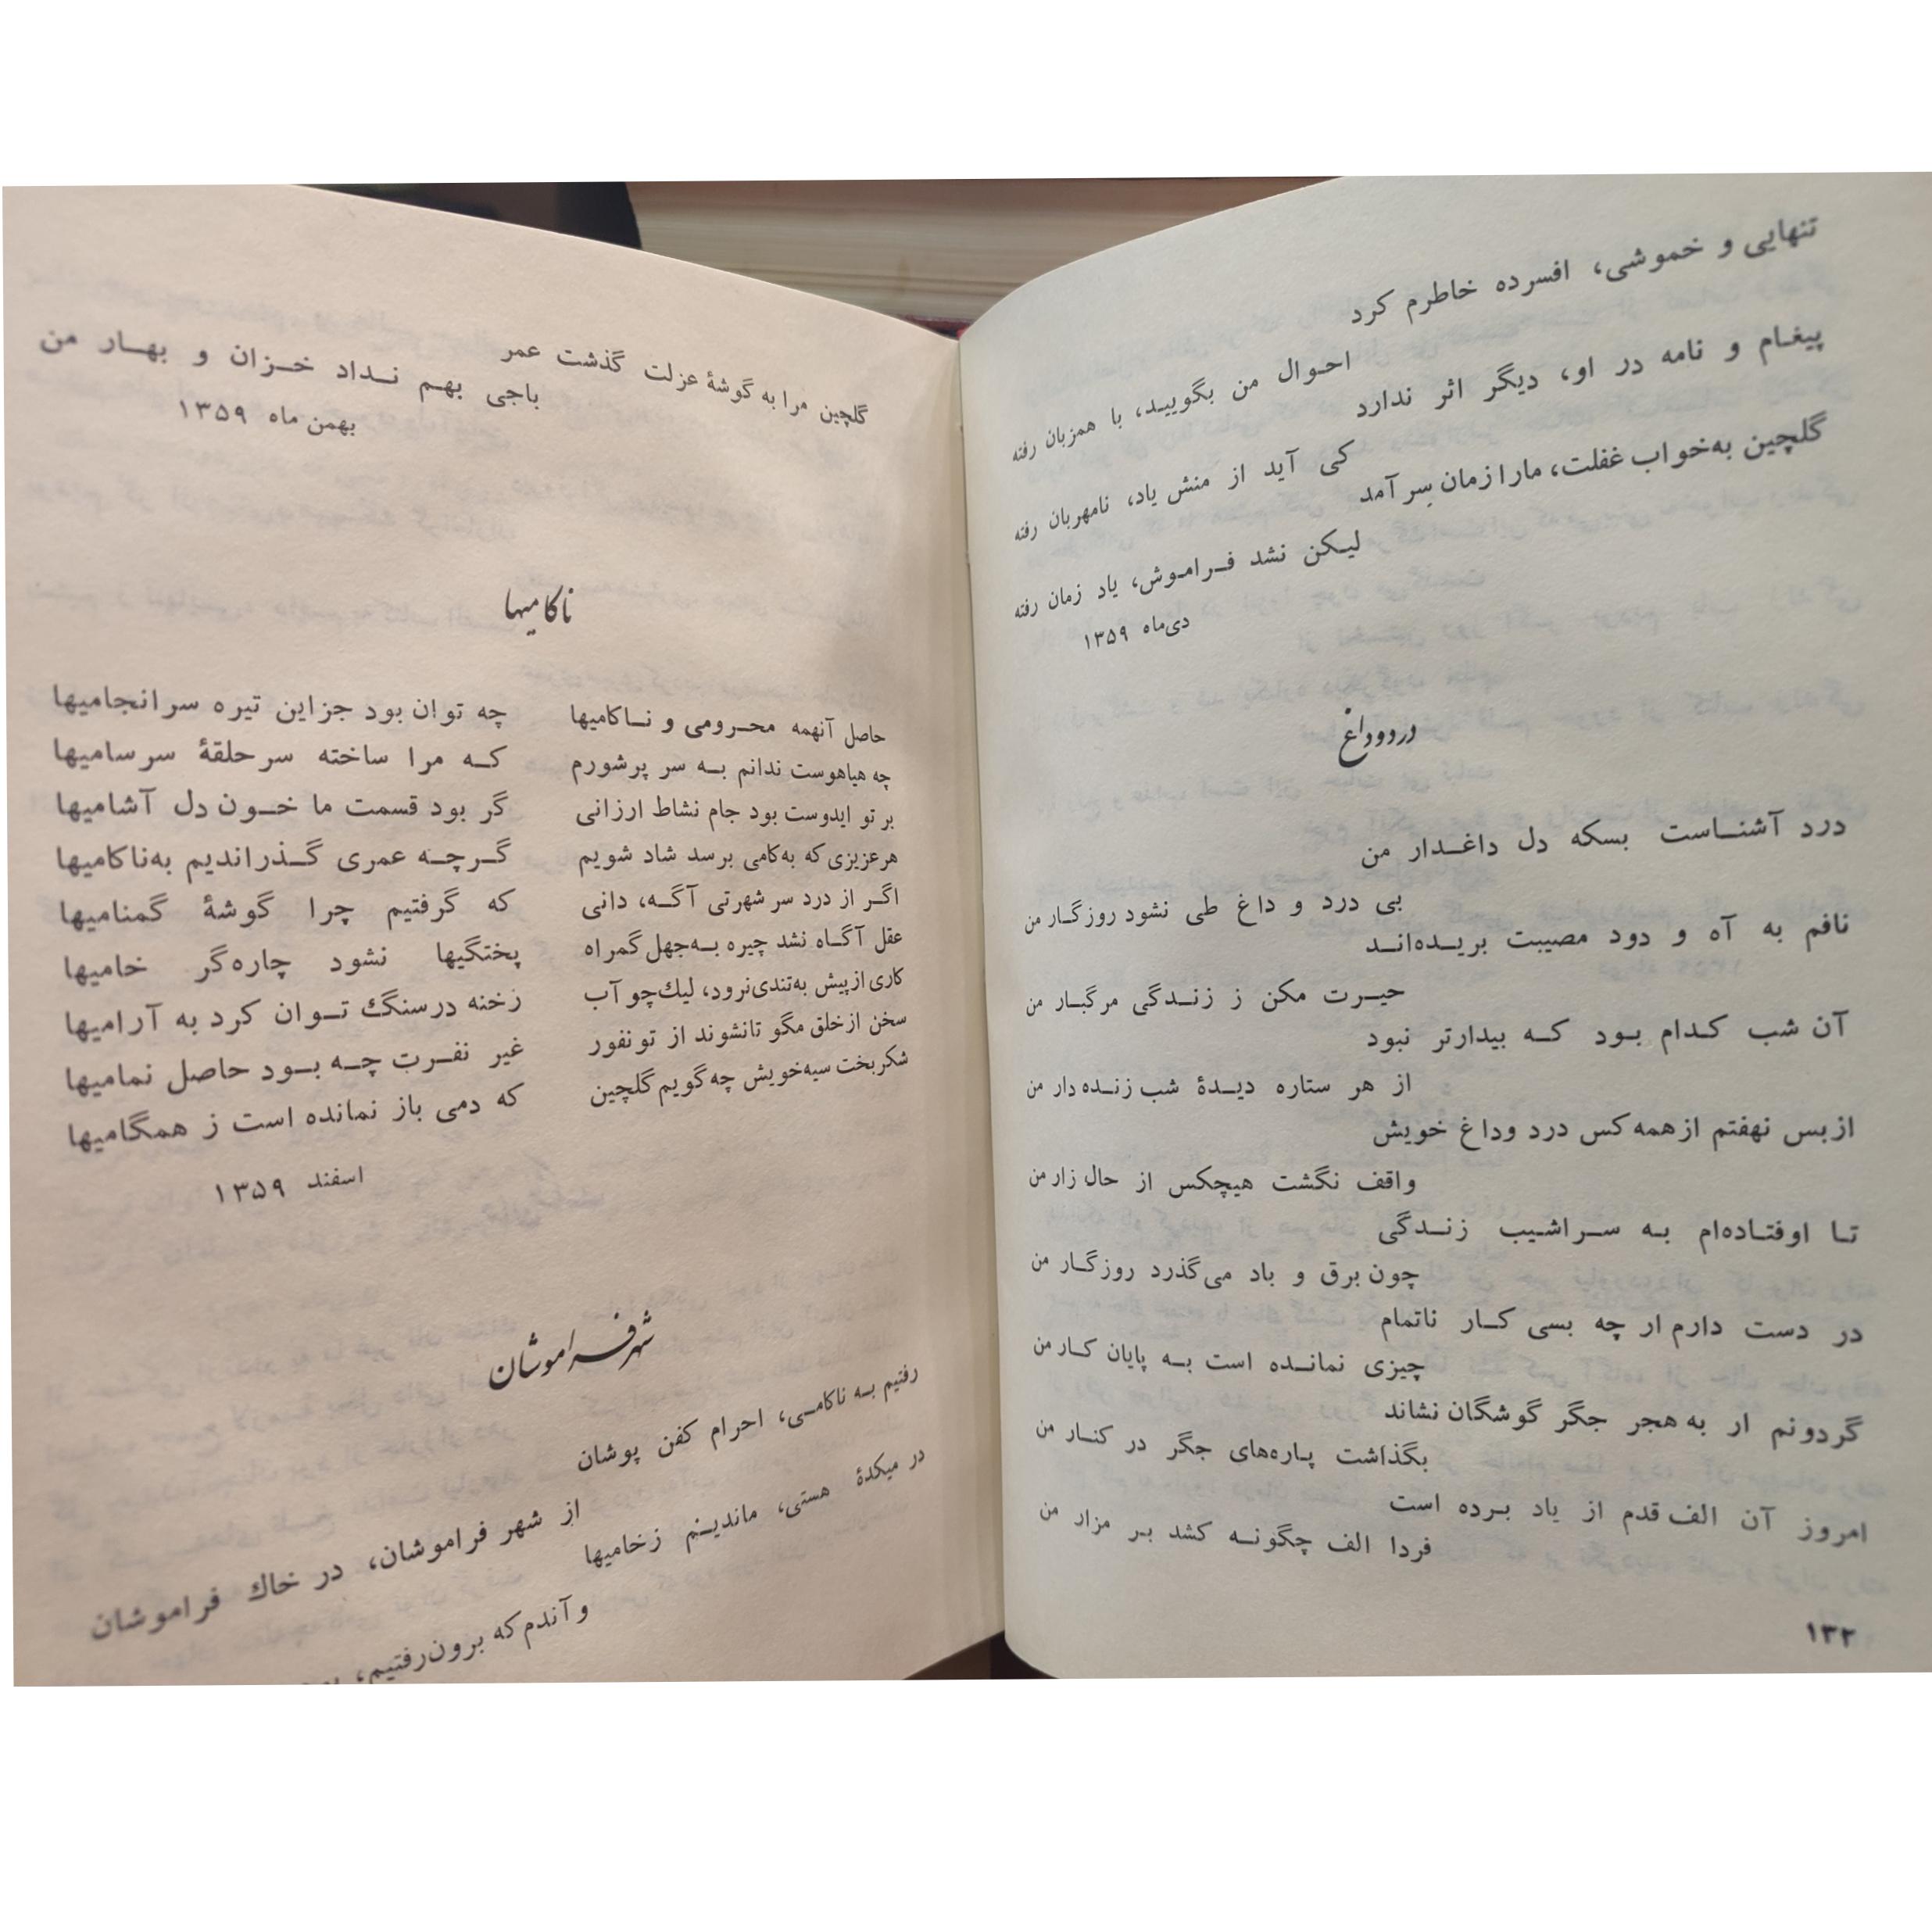 تنهایی و خموشی، افسرده خاطرم کرد
احوال من بگویید، با همزبان رفته
پیغام و نامه در او، دیگر اثر ندارد
کی آید از منش یاد، نامهربان رفته
گلچین به‌خواب غفلت، ما را زمان سر آمد
لیکن نشد فراموش، یاد زمان رفته
دی‌ماه ۱۳۵۹
درد و داغ
درد آشناست بسکه دل داغدار من
بی درد و داغ طی نشود روزگار من
نافم به آه و دود مصیبت بریده‌اند
حیرت مکن ز زندگی مرگبار من
آن شب کدام بود که بیدارتر نبود
از هر ستاره دیدهٔ شب زنده دار من
از بس نهفتم از همه کس درد و داغ خویش
واقف نگشت هیچکس از حال زار من
تا اوفتاده‌ام به سراشیب زندگی
چون برق و باد می‌گذرد روزگار من
در دست دارم ار چه بسی کار ناتمام
چیزی نمانده است به پایان کار من
گردونم ار به هجر جگر گوشگان نشاند
بگذاشت پاره‌های جگر در کنار من
امروز آن الف قدم از یاد برده است
فردا الف چگونه کشد بر مزار من
۱۳۲
گلچین مرا به گوشهٔ عزلت گذشت عمر
باجی بهم نداد خزان و بهار من
بهمن ماه ۱۳۵۹
ناکامیها
حاصل آنهمه محرومی و ناکامیها چه توان بود جز این تیره سرانجامیها
چه هیاهوست ندانم به سر پرشورم که مرا ساخته سر حلقهٔ سرسامیها
بر تو ایدوست بود جام نشاط ارزانی گر بود قسمت ما خون دل آشامیها
هر عزیزی که به‌کامی برسد شاد شویم گرچه عمری گذراندیم به‌ناکامیها
اگر از درد سر شهرتی آگه، دانی که گرفتیم چرا گوشهٔ گمنامیها
عقل آگاه نشد چیره به‌جهل گمراه پختگیها نشود چاره‌گر خامیها
کاری از پیش به‌تندی نرود، لیك چو آب رخنه در سنگ توان کرد به آرامیها
سخن از خلق مگو تا نشوند از تو نفور غیر نفرت چه بود حاصل نمامیها
شکر بخت سیه خویش چه گویم گلچین که دمی باز نمانده است ز همگامیها
اسفند ۱۳۵۹
شهر فراموشان
رفتیم به ناکامی، احرام کفن پوشان
از شهر فراموشان، در خاك فراموشان
در میکدهٔ هستی، ماندیم ز خامیها
و آندم که برون رفتیم،